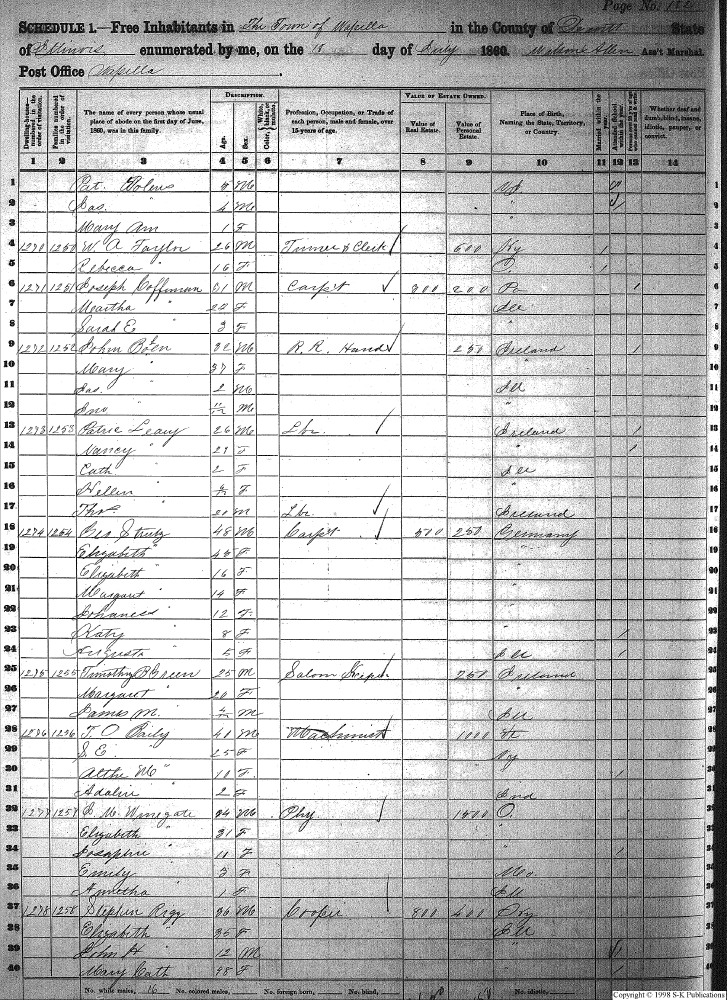 Page No. 182
SCHEDULE 1.—Free Inhabitants in The Town of Wapella in the County of Dewitt State
of Illinois enumerated by me, on the 18 day of July 1860. Allen Ass't Marshal.
Post Office Wapella
Dwelling-houses numbered in the order of visitation.
Families numbered in the order of visitation.
The name of every person whose usual place of abode on the first day of June, 1860, was in this family.
DESCRIPTION.
Age
Sex
Color,
Profession, Occupation, or Trade of each person, male and female, over 15 years of age.
VALUE OF ESTATE OWNED.
Value of Real Estate.
Value of Personal Estate.
Place of Birth, Naming the State, Territory, or Country.
Married within the year.
Attended School within the year.
Whether deaf and dumb, blind, insane, idiotic, pauper, or convict.
1 2 3 4 5 6 7 8 9 10 11 12 13 14
1 Pat. M
2 Jas. " 4 M
3 Mary Ann 1 F "
4 1270 1250 W. A Taylor 26 M Turner & Clerk 600 Ky /
5 Rebecca " 16 F O. /
6 1271 1251 Joseph Coffman 31 M Carpt 300 200 Pa /
7 Martha " 20 F Ill
8 Sarah E " 3 F "
9 1272 1252 John 32 M R. R. Hand 250 Ireland /
10 Mary " 37 F "
11 Jas. " 2 M Ill
12 Jno " M "
13 1273 1253 Patric Leary 26 M Lbr. Ireland /
14 Nancy " F " /
15 Cath " 2 F Ill
16 Hellen " F "
17 Thos. " 20 M Lbr. Ireland
18 1274 1254 Geo 48 M Carpt 500 250 Germany
19 Elizabeth " 43 F "
20 Elizabeth " 16 F "
21 Margaret " 14 F "
22 Johaness " 12 "
23 Katy " 8 F " /
24 Augusta " 5 F Ill /
25 1275 1255 Timothy B Green 25 M Saloon Keeper 250 Ireland
26 Margaret " 20 F "
27 James M. " M Ill
28 1276 1256 T. O 40 M Machinist 1000
29 S. E. " 25 F Ky
30 M " 10 F " /
31 Adalin " 2 F Ind
32 1277 1257 M. Winegate 34 M Phy 1500 O.
33 Elizabeth " 31 F "
34 Josaphine " 11 F " /
35 Emily " 3 F Mo
36 " 1 F Ill
37 1278 1258 Stephen 36 M Cooper 800 400 Ky
38 Elizabeth " 35 F Ill
39 John H " 12 M " /
40 Mary Cath " F " /
No. white males, 16 No. colored males, No. foreign born, No. blind, No. idiotic,
Copyright © 1998 S-K Publications